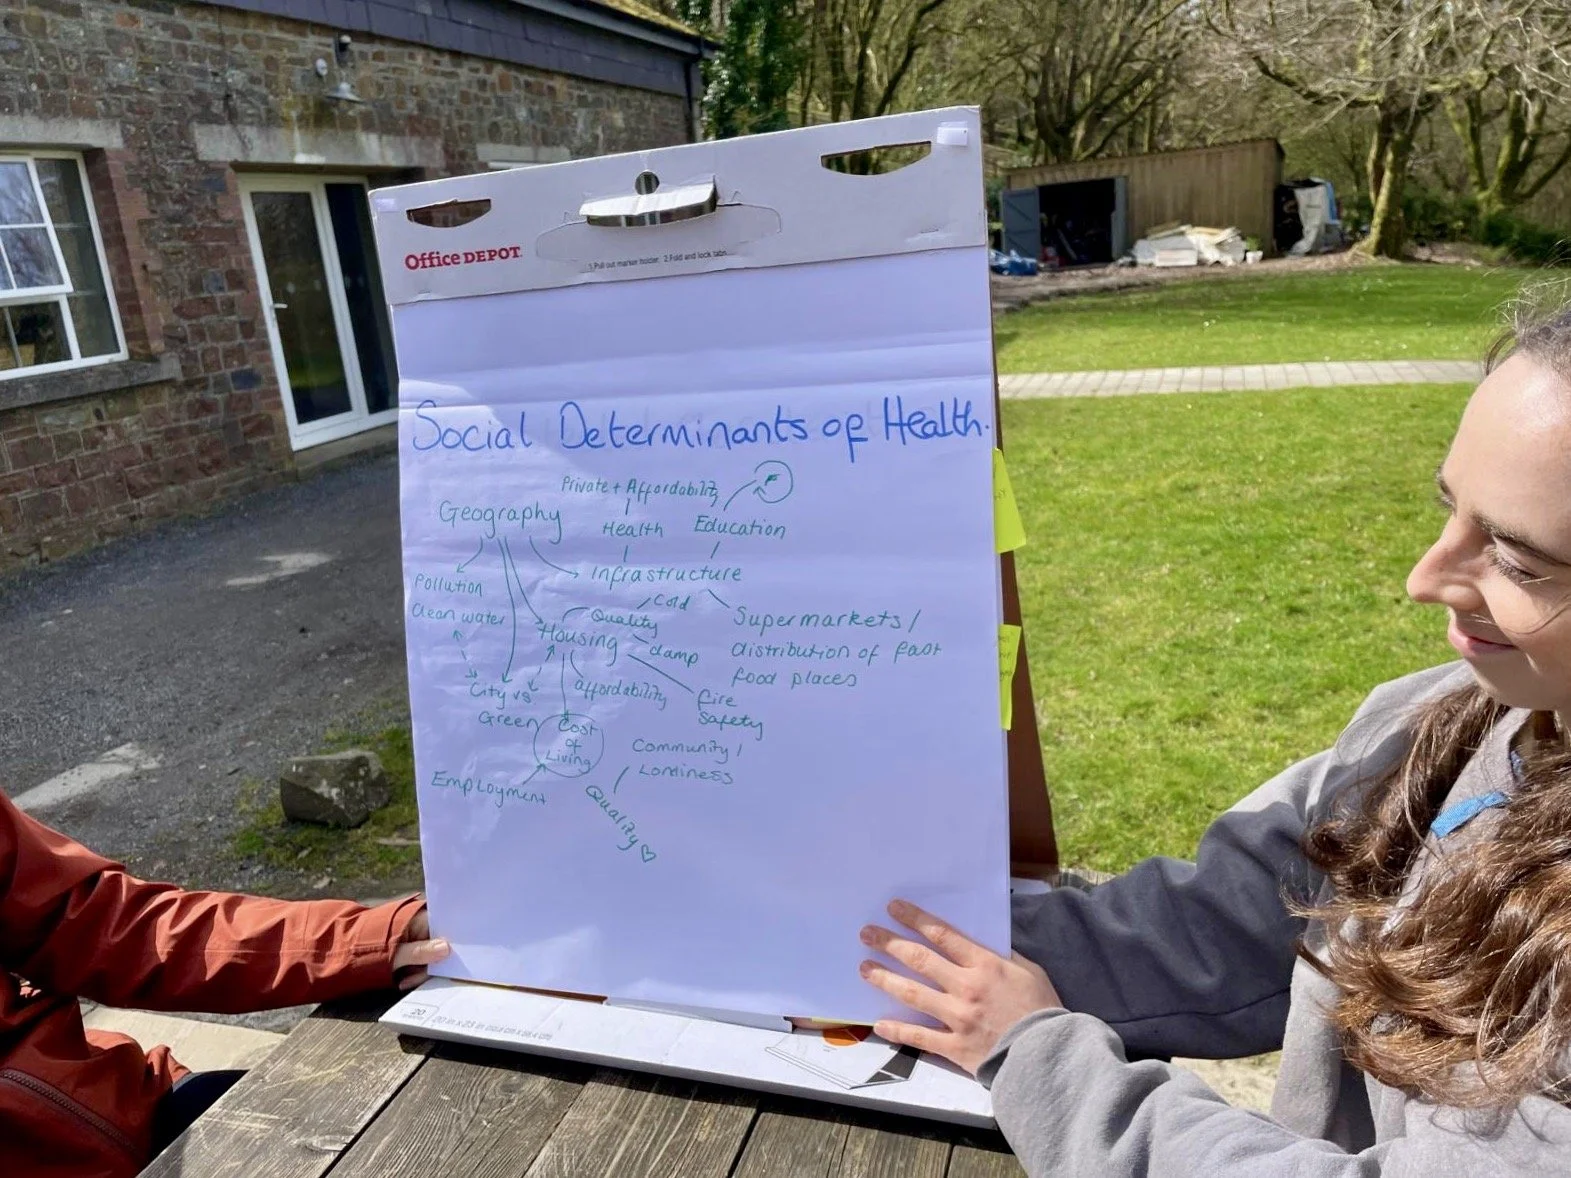 Office DEPOT
1. Pull out marker holder. 2. Fold and lock tabs
Social Determinants of Health.
Private + Affordability
F
Geography
Health
Education
Pollution
Infrastructure
Clean water
Cold
Quality
Supermarkets /
Housing
damp
distribution of fast
food places
City vs
Green
affordability
fire
Safety
Cost
of
Living
Community /
Lonliness
Employment
Quality ♡
20
20 in x 23 in (50.8 cm x 58.4 cm)